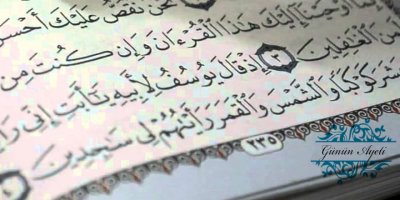 نَحْنُ نَقُصُّ عَلَيْكَ أَحْسَنَ
أَوْحَيْنَا إِلَيْكَ هَٰذَا ٱلْقُرْءَانَ وَإِن كُنتَ مِن
ٱلْغَٰفِلِينَ ٣ إِذْ قَالَ يُوسُفُ لِأَبِيهِ يَٰٓأَبَتِ إِنِّى
كَوْكَبًا وَٱلشَّمْسَ وَٱلْقَمَرَ رَأَيْتُهُمْ لِى سَٰجِدِينَ ٤
٢٣٥
Günün Ayeti